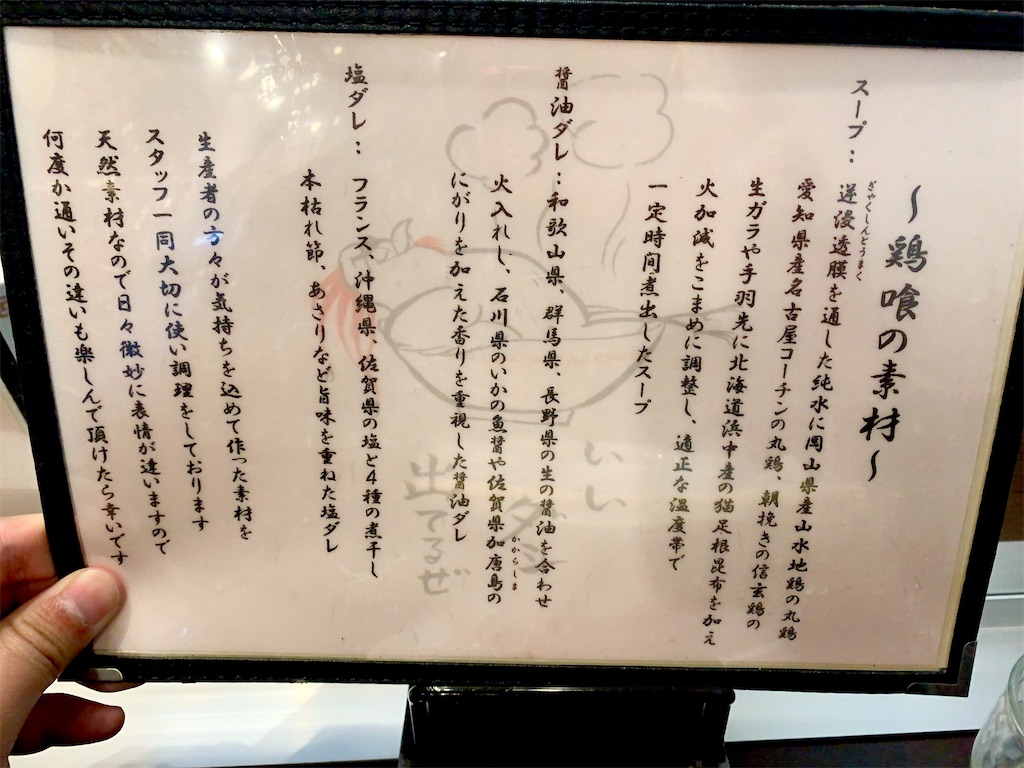 ～鶏喰の素材～
スープ：逆浸透膜を通した純水に岡山県産山水地鶏の丸鶏
ぎゃくしんとうまく
愛知県産名古屋コーチンの丸鶏、朝挽きの信玄鶏の
生ガラや手羽先に北海道浜中産の猫足根昆布を加え
火加減をこまめに調整し、適正な温度帯で
一定時間煮出したスープ
醤油ダレ：和歌山県、群馬県、長野県の生の醤油を合わせ
火入れし、石川県のいかの魚醤や佐賀県加唐島の
かからしま
にがりを加えた香りを重視した醤油ダレ
塩ダレ：フランス、沖縄県、佐賀県の塩と4種の煮干し
本枯れ節、あさりなど旨味を重ねた塩ダレ
生産者の方々が気持ちを込めて作った素材を
スタッフ一同大切に使い調理をしております
天然素材なので日々微妙に表情が違いますので
何度か通いその違いも楽しんで頂けたら幸いです
いい
ダシ
出てるぜ